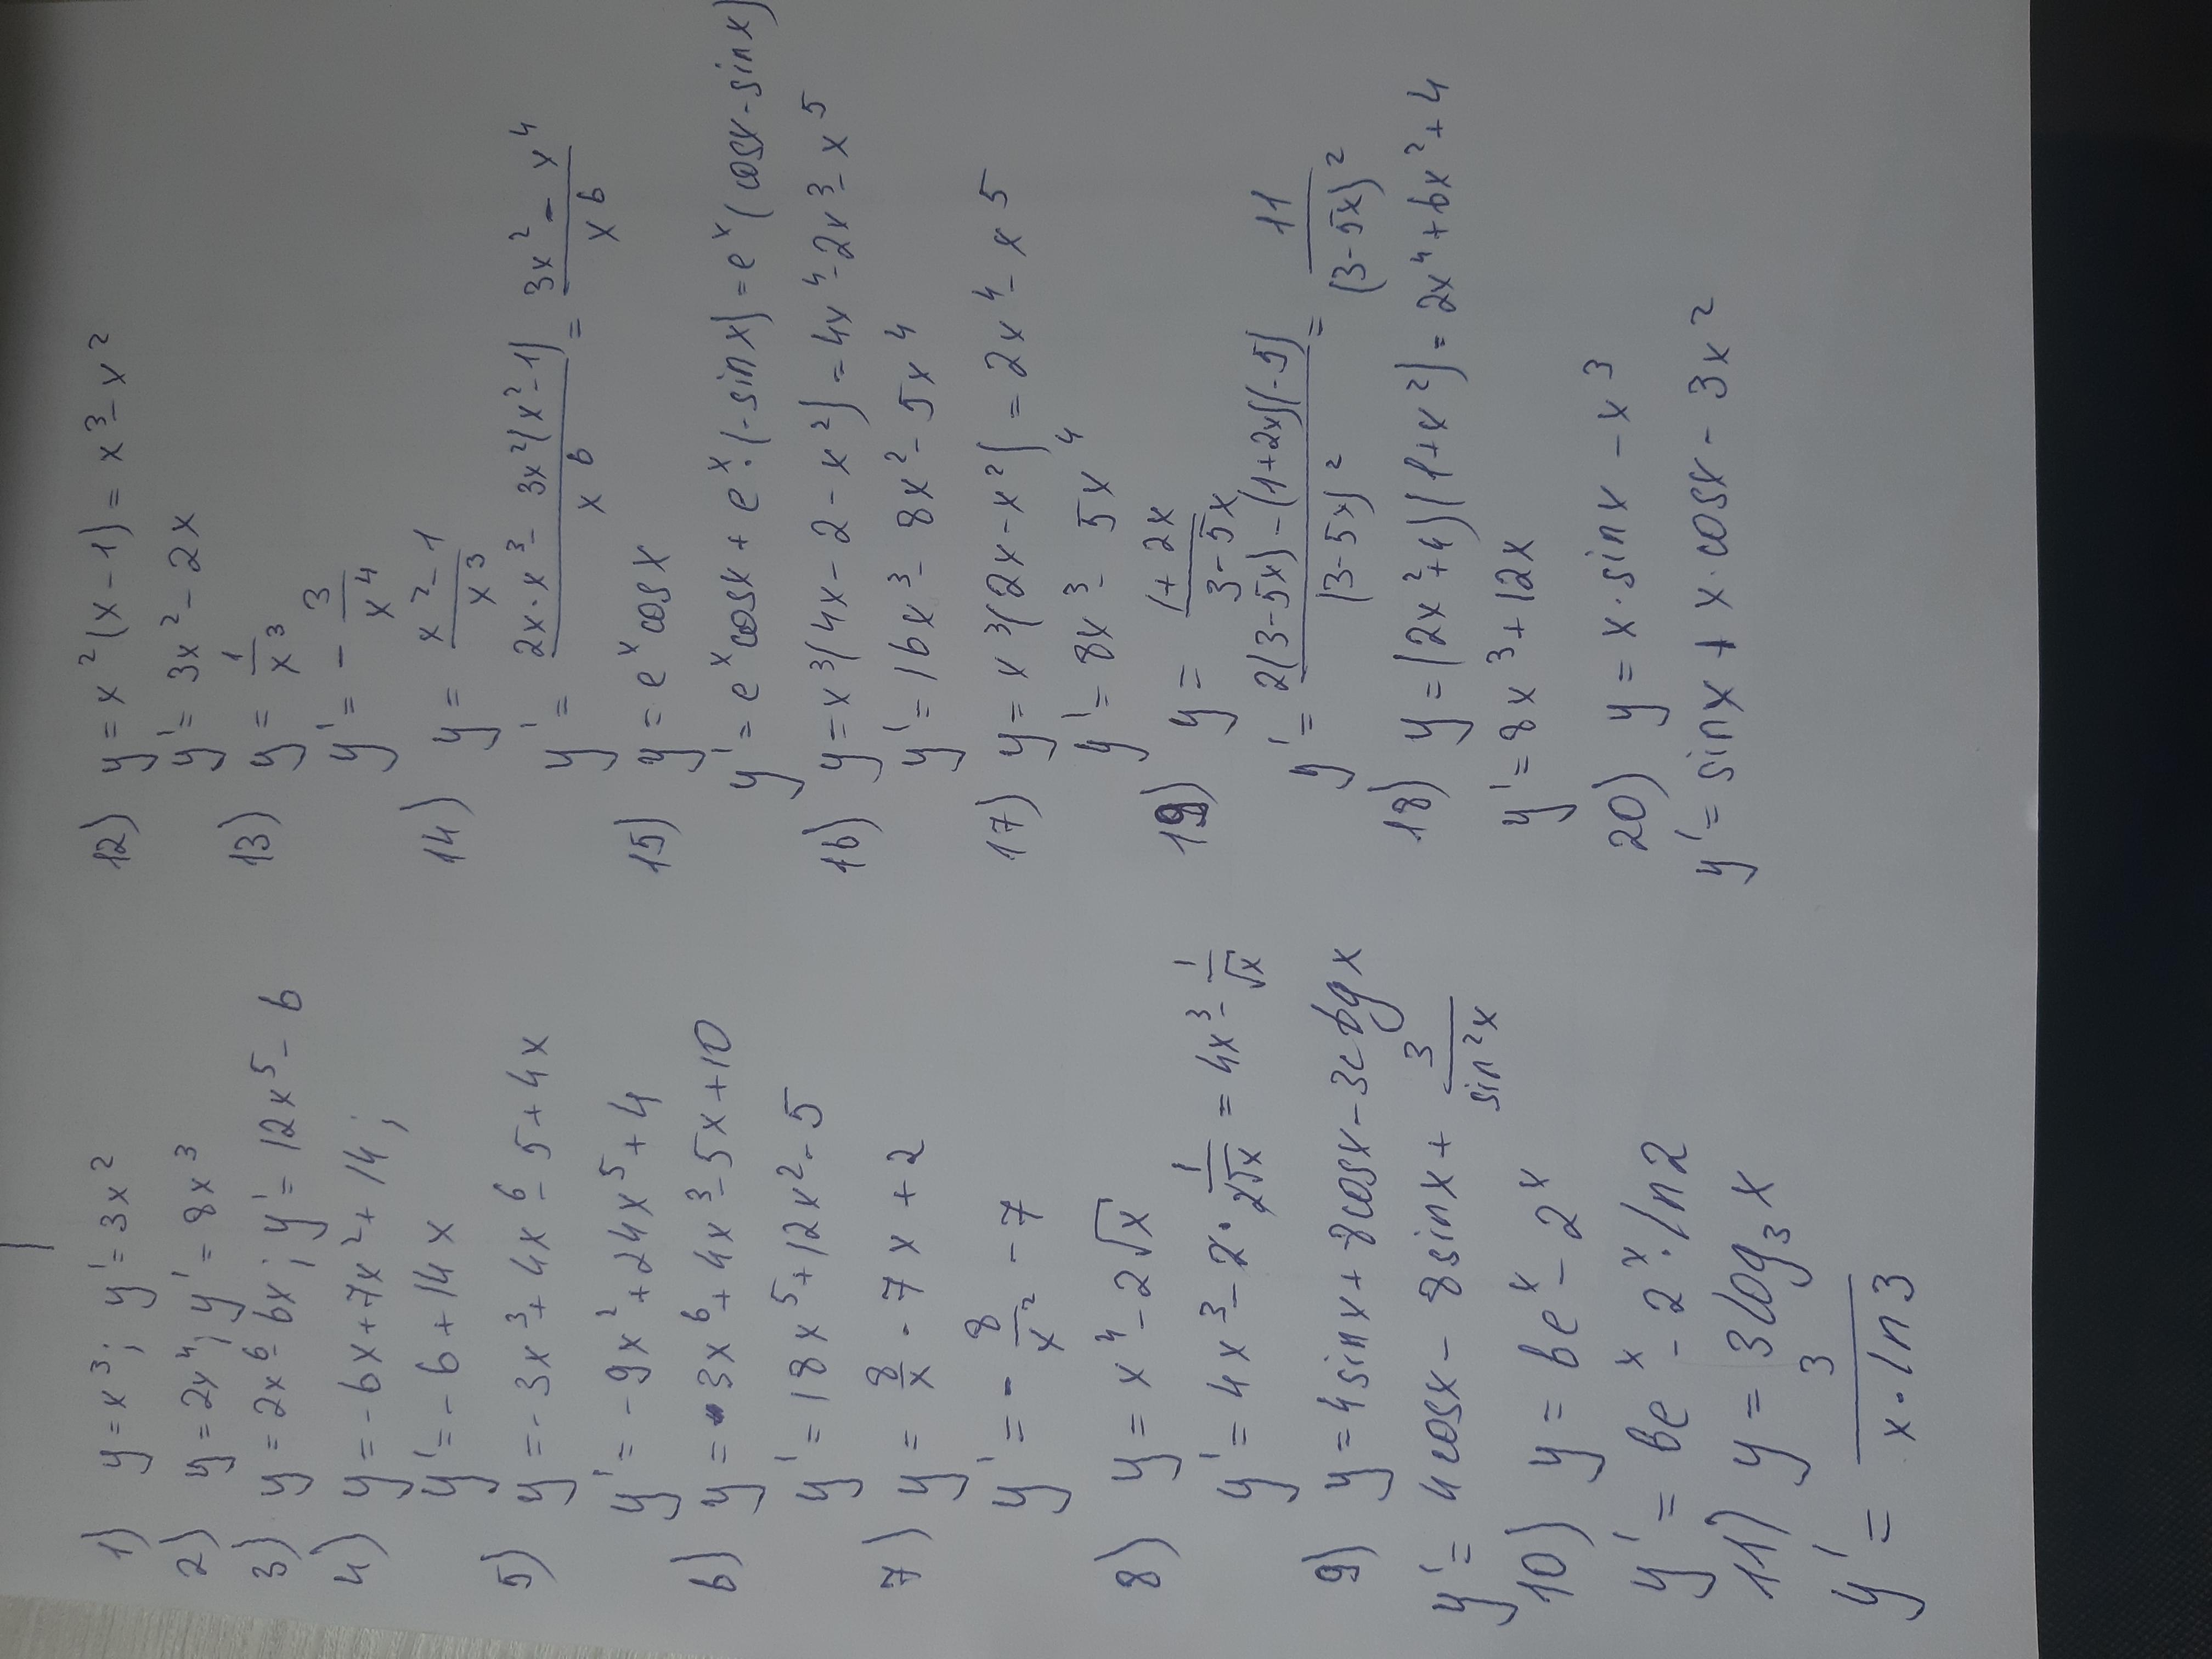 1) y = x³; y' = 3x²
2) y = 2x⁴; y' = 8x³
3) y = 2x⁶ - 6x; y' = 12x⁵ - 6
4) y = -6x + 7x² + 14;
y' = -6 + 14x
5) y = -3x³ + 4x⁶ - 5 + 4x
y' = -9x² + 24x⁵ + 4
6) y = 3x⁶ + 4x³ - 5x + 10
y' = 18x⁵ + 12x² - 5
7) y = 8/x - 7x + 2
y' = - 8/x² - 7
8) y = x⁴ - 2√x
y' = 4x³ - 2 · 1/(2√x) = 4x³ - 1/√x
9) y = 4sinx + 8cosx - 3ctgx
y' = 4cosx - 8sinx + 3/sin²x
10) y = 6eˣ - 2ˣ
y' = 6eˣ - 2ˣ · ln2
11) y = 3log₃x
y' = 3/(x · ln3)
12) y = x²(x - 1) = x³ - x²
y' = 3x² - 2x
13) y = 1/x³
y' = - 3/x⁴
14) y = (x² - 1)/x³
y' = (2x · x³ - 3x²(x² - 1))/x⁶ = (3x² - x⁴)/x⁶
15) y = eˣcosx
y' = eˣcosx + eˣ · (-sinx) = eˣ(cosx - sinx)
16) y = x³(4x - 2 - x²) = 4x⁴ - 2x³ - x⁵
y' = 16x³ - 8x² - 5x⁴
17) y = x³(2x - x²) = 2x⁴ - x⁵
y' = 8x³ - 5x⁴
19) y = (1 + 2x)/(3 - 5x)
y' = (2(3 - 5x) - (1 + 2x)(-5))/(3 - 5x)² = 11/(3 - 5x)²
18) y = (2x² + 4)(1 + x²) = 2x⁴ + 6x² + 4
y' = 8x³ + 12x
20) y = x · sinx - x³
y' = sinx + x · cosx - 3x²